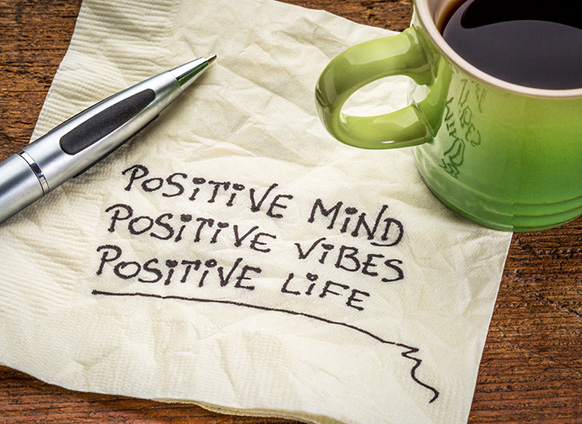 POSITIVE MIND
POSITIVE VIBES
POSITIVE LIFE